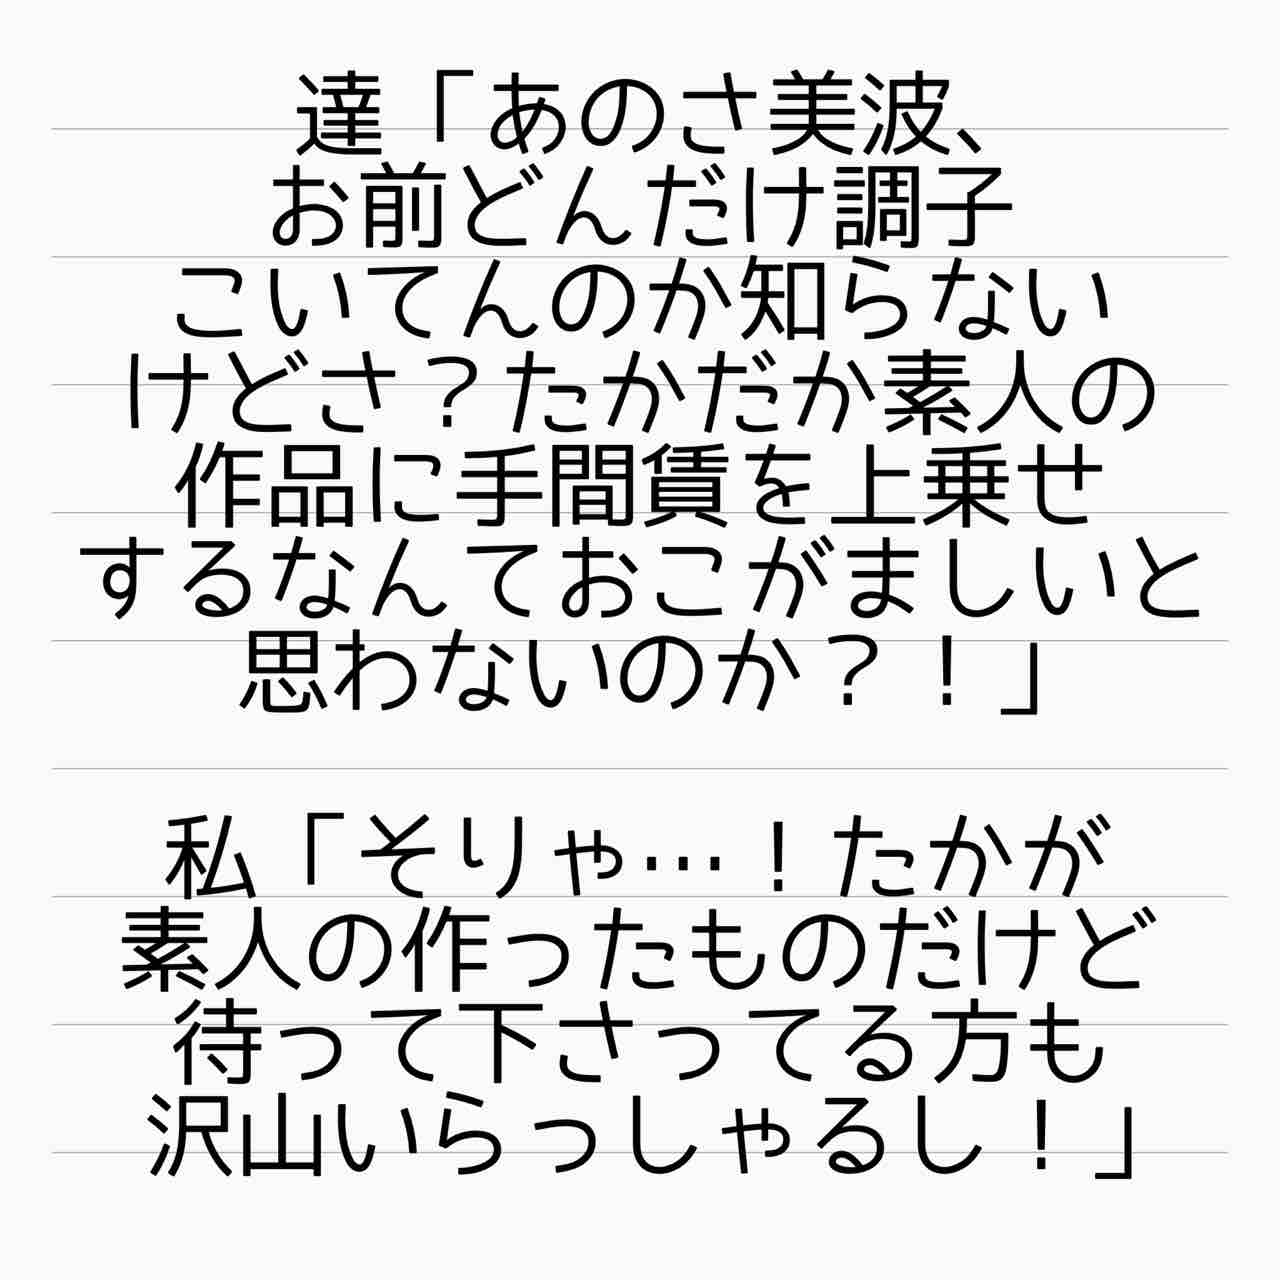 達「あのさ美波、
お前どんだけ調子
こいてんのか知らない
けどさ？たかだか素人の
作品に手間賃を上乗せ
するなんておこがましいと
思わないのか？！」
私「そりゃ…！たかが
素人の作ったものだけど
待って下さってる方も
沢山いらっしゃるし！」